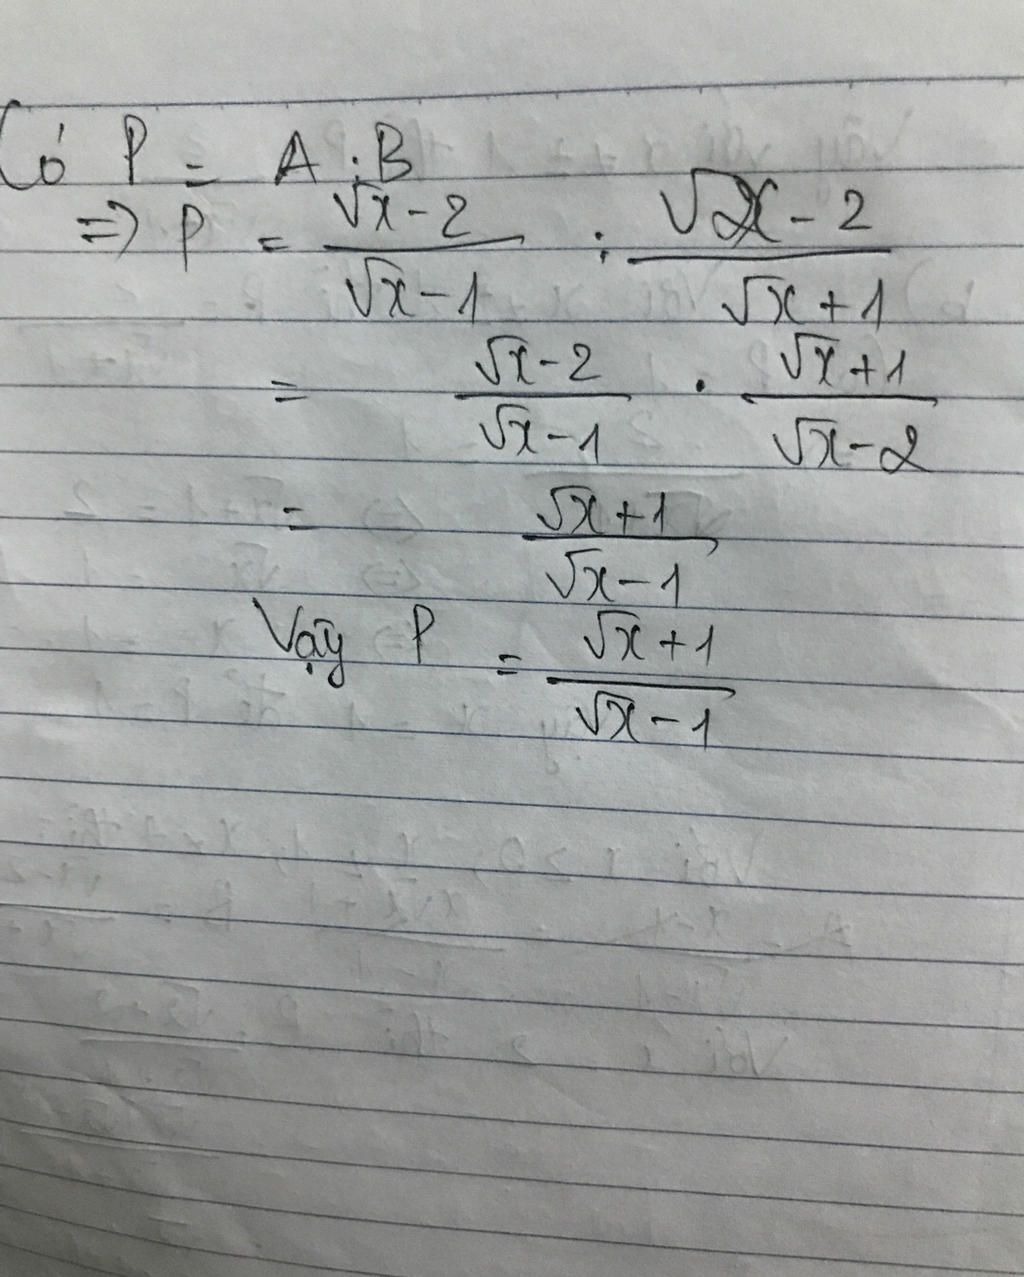 Có P = A : B
=> P = \frac{\sqrt{x}-2}{\sqrt{x}-1} : \frac{\sqrt{x}-2}{\sqrt{x}+1}
= \frac{\sqrt{x}-2}{\sqrt{x}-1} . \frac{\sqrt{x}+1}{\sqrt{x}-2}
= \frac{\sqrt{x}+1}{\sqrt{x}-1}
Vậy P = \frac{\sqrt{x}+1}{\sqrt{x}-1}